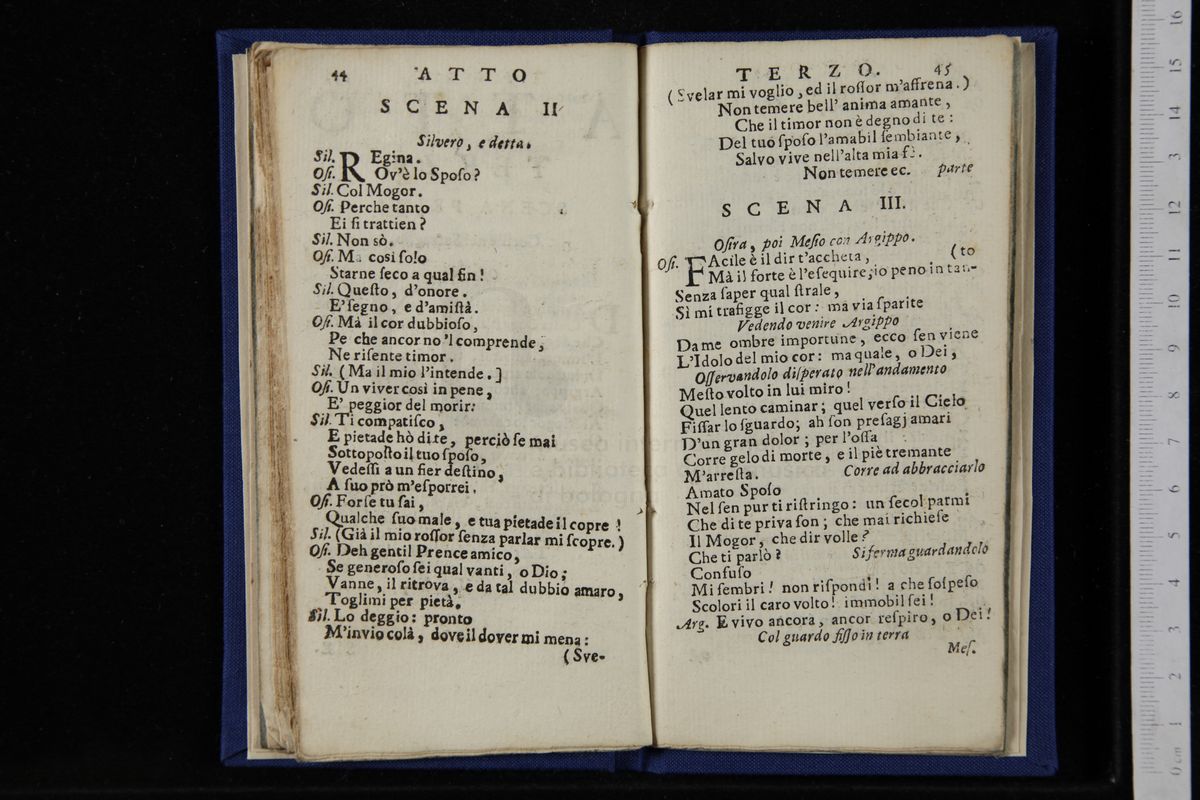 44 ATTO
SCENA II
Silvero, e detta.
Sil. REgina.
Osi. Ov'è lo Sposo?
Sil. Col Mogor.
Osi. Perche tanto
Ei si trattien?
Sil. Non sò.
Osi. Ma così solo
Starne seco a qual fin!
Sil. Questo, d'onore.
E' segno, e d'amistà.
Osi. Mà il cor dubbioso,
Pe che ancor no'l comprende,
Ne risente timor.
Sil. (Ma il mio l'intende.]
Osi. Un viver così in pene,
E' peggior del morir:
Sil. Ti compatisco,
E pietade hò di te, perciò se mai
Sottoposto il tuo sposo,
Vedessi a un fier destino,
A suo prò m'esporrei.
Osi. Forse tu sai,
Qualche suo male, e tua pietade il copre!
Sil. (Già il mio rossor senza parlar mi scopre.)
Osi. Deh gentil Prence amico,
Se generoso sei qual vanti, o Dio;
Vanne, il ritrova, e da tal dubbio amaro,
Toglimi per pietà.
Sil. Lo deggio: pronto
M'invio colà, dove il dover mi mena:
(Sve-
TERZO. 45
(Svelar mi voglio, ed il rossor m'affrena.)
Non temere bell' anima amante,
Che il timor non è degno di te:
Del tuo sposo l'amabil sembiante,
Salvo vive nell'alta mia fè.
Non temere ec. parte
SCENA III.
Osira, poi Mesio con Argippo.
Osi. FAcile è il dir t'accheta, (to
Mà il forte è l'esequire, io peno in tan-
Senza saper qual strale,
Sì mi trafigge il cor: ma via sparite
Vedendo venire Argippo
Da me ombre importune, ecco sen viene
L'Idolo del mio cor: ma quale, o Dei,
Osservandolo disperato nell'andamento
Mesto volto in lui miro!
Quel lento caminar; quel verso il Cielo
Fissar lo sguardo; ah son presagj amari
D'un gran dolor; per l'ossa
Corre gelo di morte, e il piè tremante
M'arresta. Corre ad abbracciarlo
Amato Sposo
Nel sen pur ti ristringo: un secol parmi
Che di te priva son; che mai richiese
Il Mogor, che dir volle?
Che ti parlò? Si ferma guardandolo
Confuso
Mi sembri! non rispondi! a che sospeso
Scolori il caro volto! immobil sei!
Arg. E vivo ancora, ancor respiro, o Dei!
Col guardo fisso in terra
Mes.